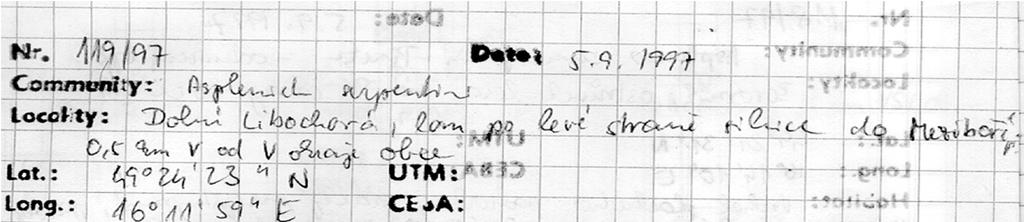 Nr. 119/97 Date: 5.9.1997
Community: Asplenietum serpentini
Locality: Dolní Libochová, lom po levé straně silnice do Meziboří,
0,5 km V od V okraje obce
Lat.: 49°24'23" N UTM:
Long.: 16°11'59" E CEBA: